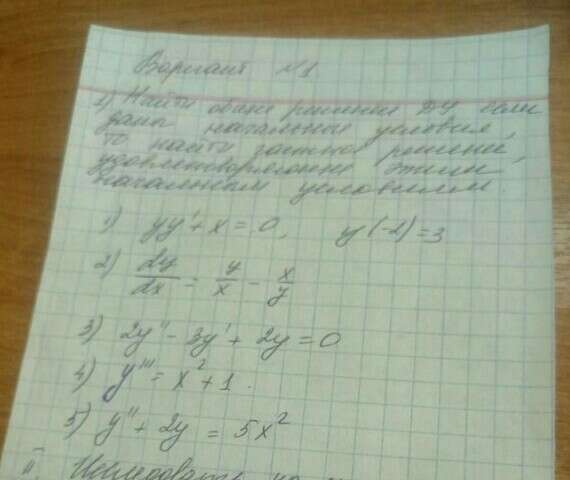 Вариант №1
1) Найти общее решение ДУ если
даны начальные условия,
то найти частное решение,
удовлетворяющие этим
начальным условиям.
1) yy' + x = 0, y(-2)=3
2) dy/dx = y/x - x/y
3) 2y'' - 3y' + 2y = 0
4) y''' = x² + 1.
5) y'' + 2y = 5x²
II. Исследовать на